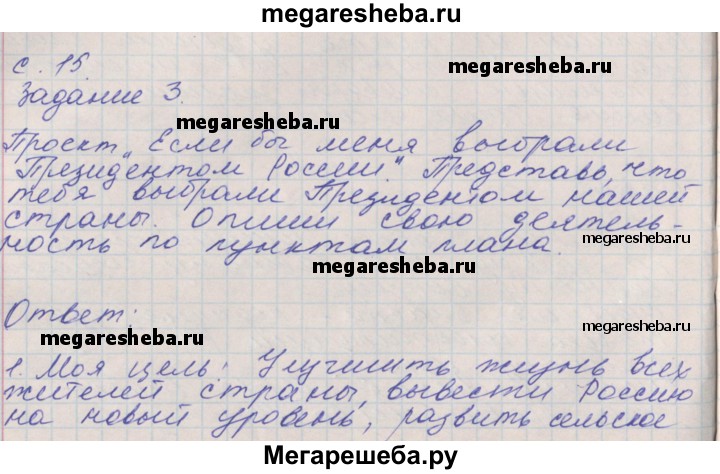 megaresheba.ru
с. 15.
megaresheba.ru
Задание 3.
megaresheba.ru
Проект „Если бы меня выбрали
megaresheba.ru
Президентом России." Представь, что
тебя выбрали Президентом нашей
страны. Опиши свою деятель-
ность по пунктам плана.
megaresheba.ru
megaresheba.ru
Ответ:
megaresheba.ru
megaresheba.ru
1. Моя цель: Улучшить жизнь всех
жителей страны, вывести Россию
на новый уровень, развить сельское
Мегарешеба.ру